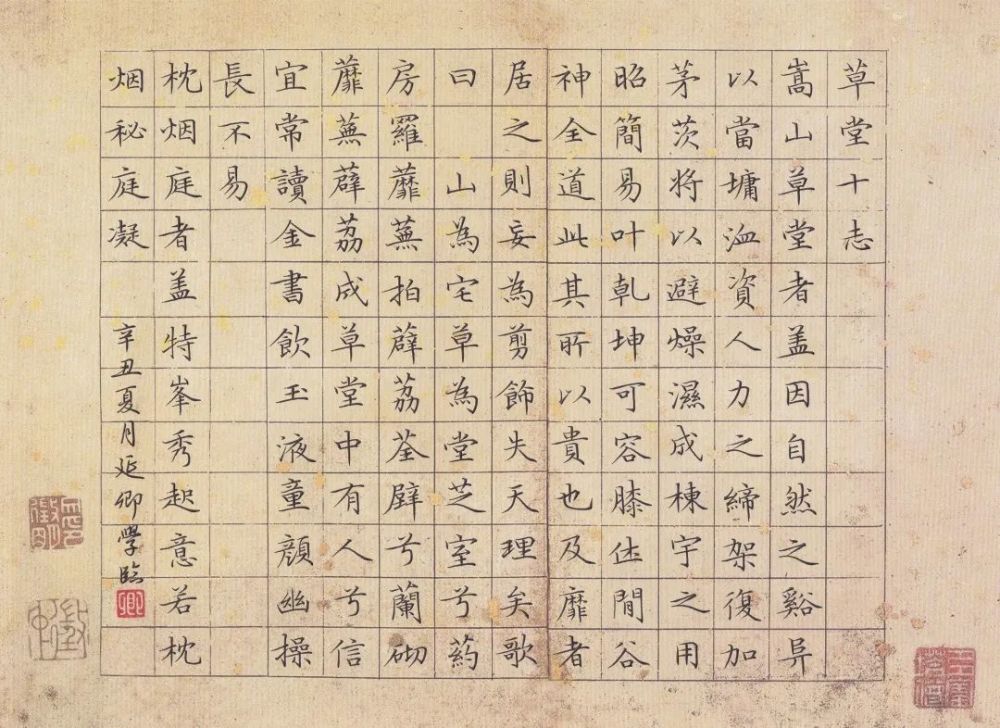 草堂十志
嵩山草堂者盖因自然之谿异
以當墉洫資人力之締架復加
茅茨將以避燥濕成棟宇之用
昭簡易叶乹坤可容膝休閒谷
神全道此其所以貴也及靡者
居之則妄為剪飾失天理矣歌
曰 山為宅草為堂芝室兮葯
房羅蘼蕪拍薜荔荃壁兮蘭砌
蘼蕪薜荔成草堂中有人兮信
宜常讀金書飲玉液童顔幽操
長不易
枕烟庭者盖特峯秀起意若枕
烟秘庭凝
辛丑夏月延卿學臨
卿